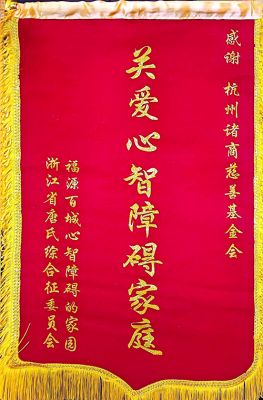 感谢 杭州诸商慈善基金会
关爱心智障碍家庭
福源百城心智障碍的家园
浙江省唐氏综合征委员会